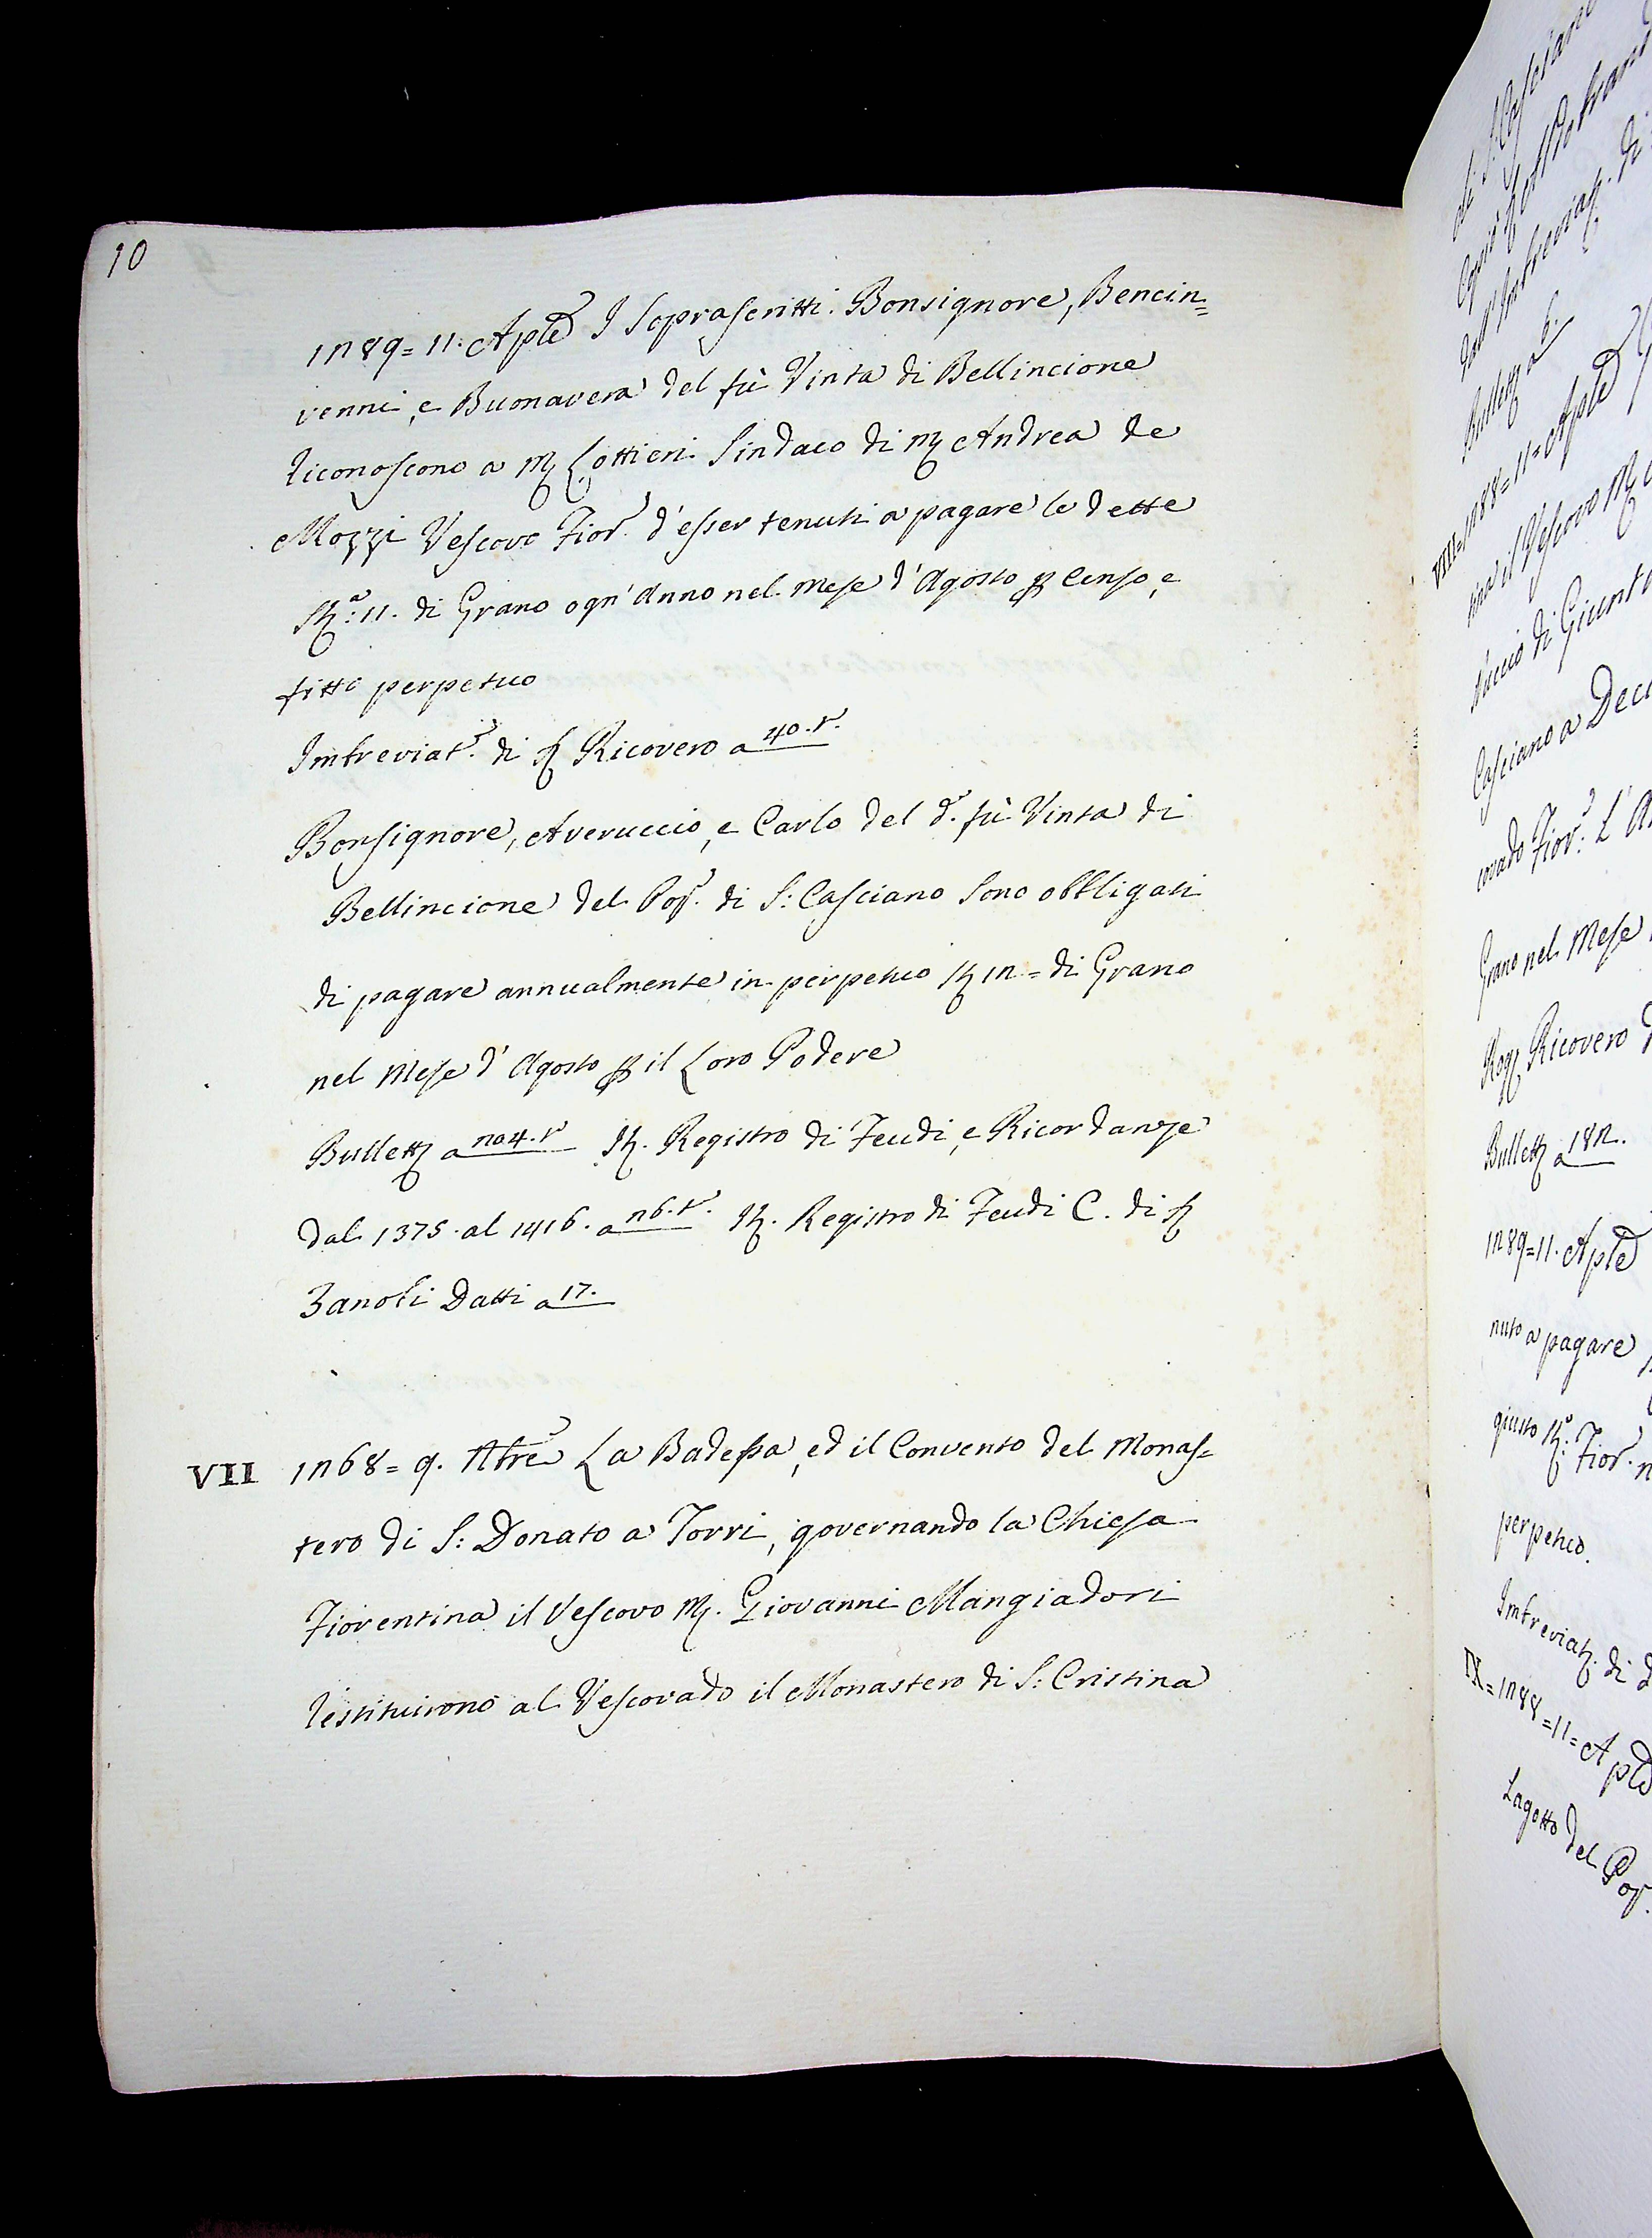 10
1289 = 11. Aple I Soprascritti Bonsignore, Bencin=
venni, e Buonavera del fù Vinta di Bellincione
riconoscono a M. Lottieri Sindaco di M. Andrea de
Mozzi Vescovo Fior. d'esser tenuti a pagare le dette
Sta: 11. di Grano ogn'Anno nel Mese d'Agosto p Censo, e
fitto perpetuo
Imbreviat. di S. Ricovero a 40. t.
Bonsignore, Averuccio, e Carlo del d. fù Vinta di
Bellincione del Pop. di S: Casciano sono obbligati
di pagare annualmente in perpetuo St 12 = di Grano
nel Mese d'Agosto p il Loro Podere
Bullett. a 204. t. It. Registro di Feudi, e Ricordanze
dal 1375. al 1416. a 26. t. It. Registro di Feudi C. di S.
Zanobi Datti a 17.
VII 1268 = 9. Xbre La Badessa, ed il Convento del Monas=
tero di S: Donato a Torri, governando la Chiesa
Fiorentina il Vescovo M. Giovanni Mangiadori
restituirono al Vescovado il Monastero di S: Cristina
di S. Casciano
Bullett. a 6.
VIII = 1288 = 11 = Aple
il Vescovo M.
di Giunta
Casciano a Deci
covado Fior. L'
Grano nel Mese
Rog. Ricovero
Bullett. a 182.
1289 = 11. Aple
nuto a pagare
giusto St. Fior.
perpetuo.
Imbreviat. di
IX = 1288 = 11 = Aple
Lagotto del Pop.